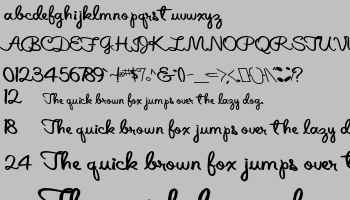 abcdefghijklmnopqrst uvwxyz
ABCDEFGHIJKLMNOPQRSTUVW
0123456789
12 The quick brown fox jumps over the lazy dog.
18 The quick brown fox jumps over the lazy d
24 The quick brown fox jumps over